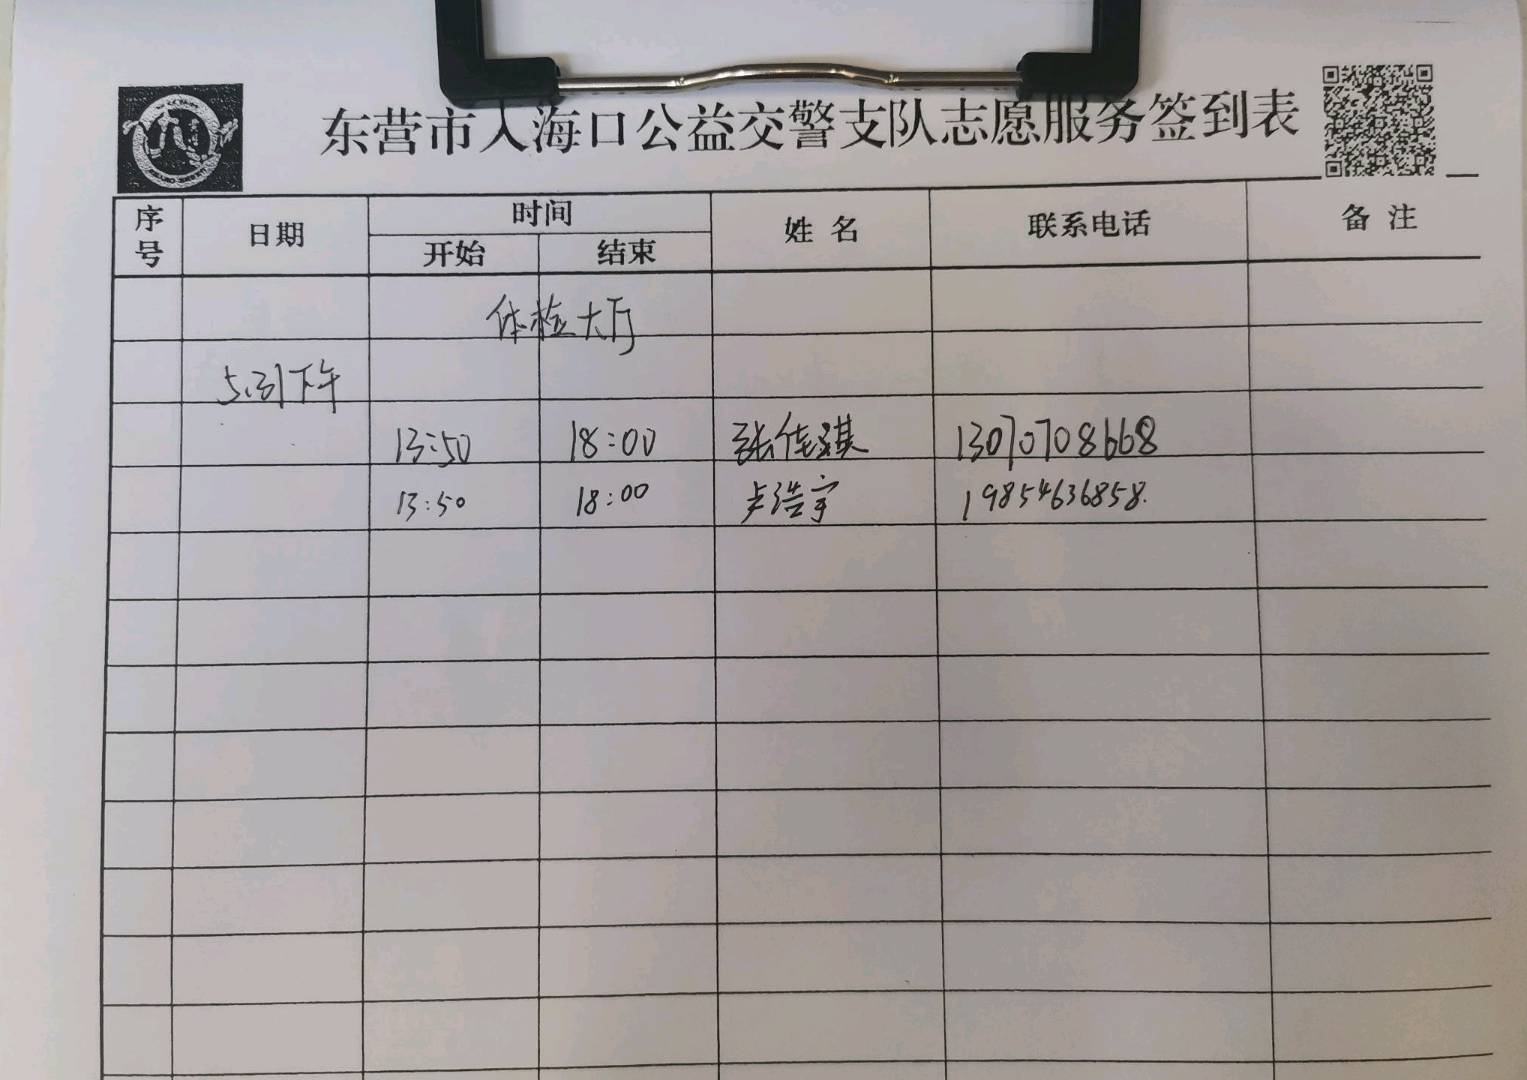 东营市入海口公益交警支队志愿服务签到表
序号 日期 时间 姓名 联系电话 备注
开始 结束
体检大厅
5.31下午
13:50 18:00 张佳琪 13070708668
13:50 18:00 卢浩宇 19854636858.